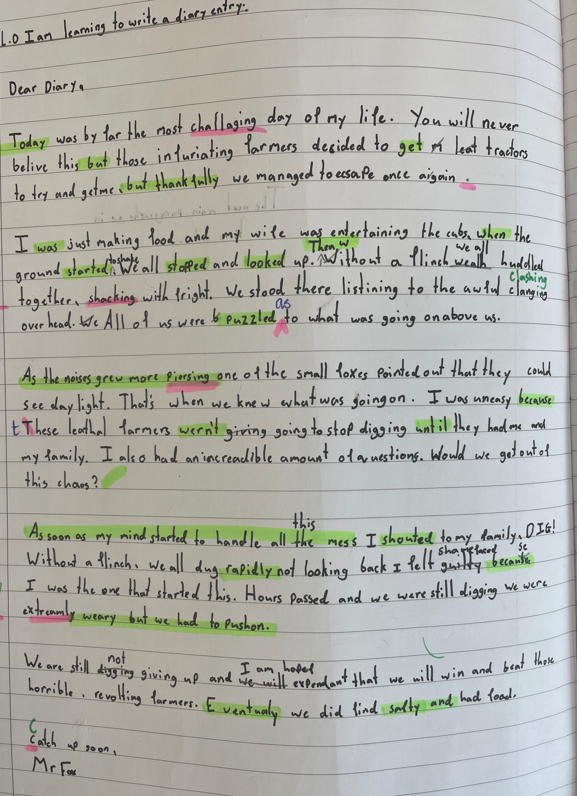 L.O I am learning to write a diary entry.
Dear Diary,
Today was by far the most challaging day of my life. You will never
belive this but those infuriating farmers decided to get leat tractors
to try and get me, but thankfully we managed to ecsape once aigain.
I was just making food and my wife was entertaining the cubs, when the
ground started to shake. We all stopped and looked up. Then, without a flinch we all huddled
together, shacking with fright. We stood there listining to the awful clashing clanging
over head. We All of us were puzzled as to what was going on above us.
As the noises grew more piersing one of the small foxes pointed out that they could
see day light. That's when we knew what was going on. I was uneasy because
t These leathal farmers wern't giving going to stop digging until they had me and
my family. I also had an increadible amount of questions. Would we get out of
this chaos?
As soon as my mind started to handle all the this mess I shouted to my family, DIG!
Without a flinch, we all dug rapidly not looking back I felt guilty because
I was the one that started this. Hours passed and we were still digging we were
extreamly weary but we had to push on.
We are still digging not giving up and we will I am hopel expendant that we will win and beat those
horrible, revolting farmers. Eventualy we did find safty and had food.
C Catch up soon,
Mr Fox